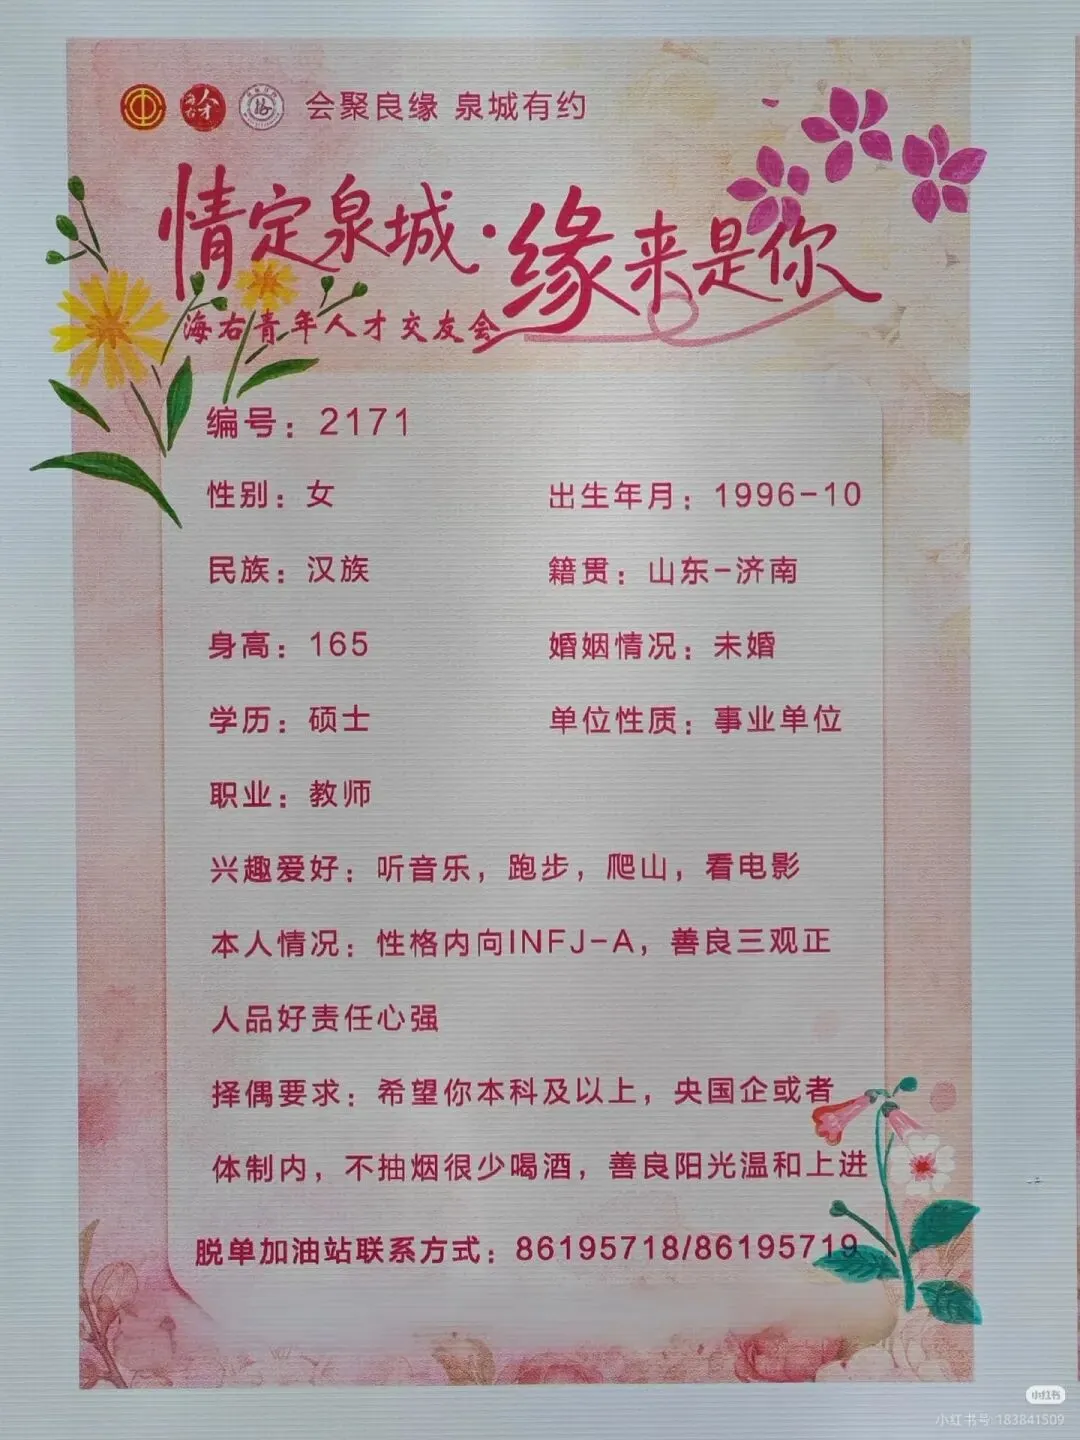 会聚良缘 泉城有约
情定泉城·缘来是你
海右青年人才交友会
编号：2171
性别：女 出生年月：1996-10
民族：汉族 籍贯：山东-济南
身高：165 婚姻情况：未婚
学历：硕士 单位性质：事业单位
职业：教师
兴趣爱好：听音乐，跑步，爬山，看电影
本人情况：性格内向INFJ-A，善良三观正
人品好责任心强
择偶要求：希望你本科及以上，央国企或者
体制内，不抽烟很少喝酒，善良阳光温和上进
脱单加油站联系方式：86195718/86195719
小红书
小红书号 183841509